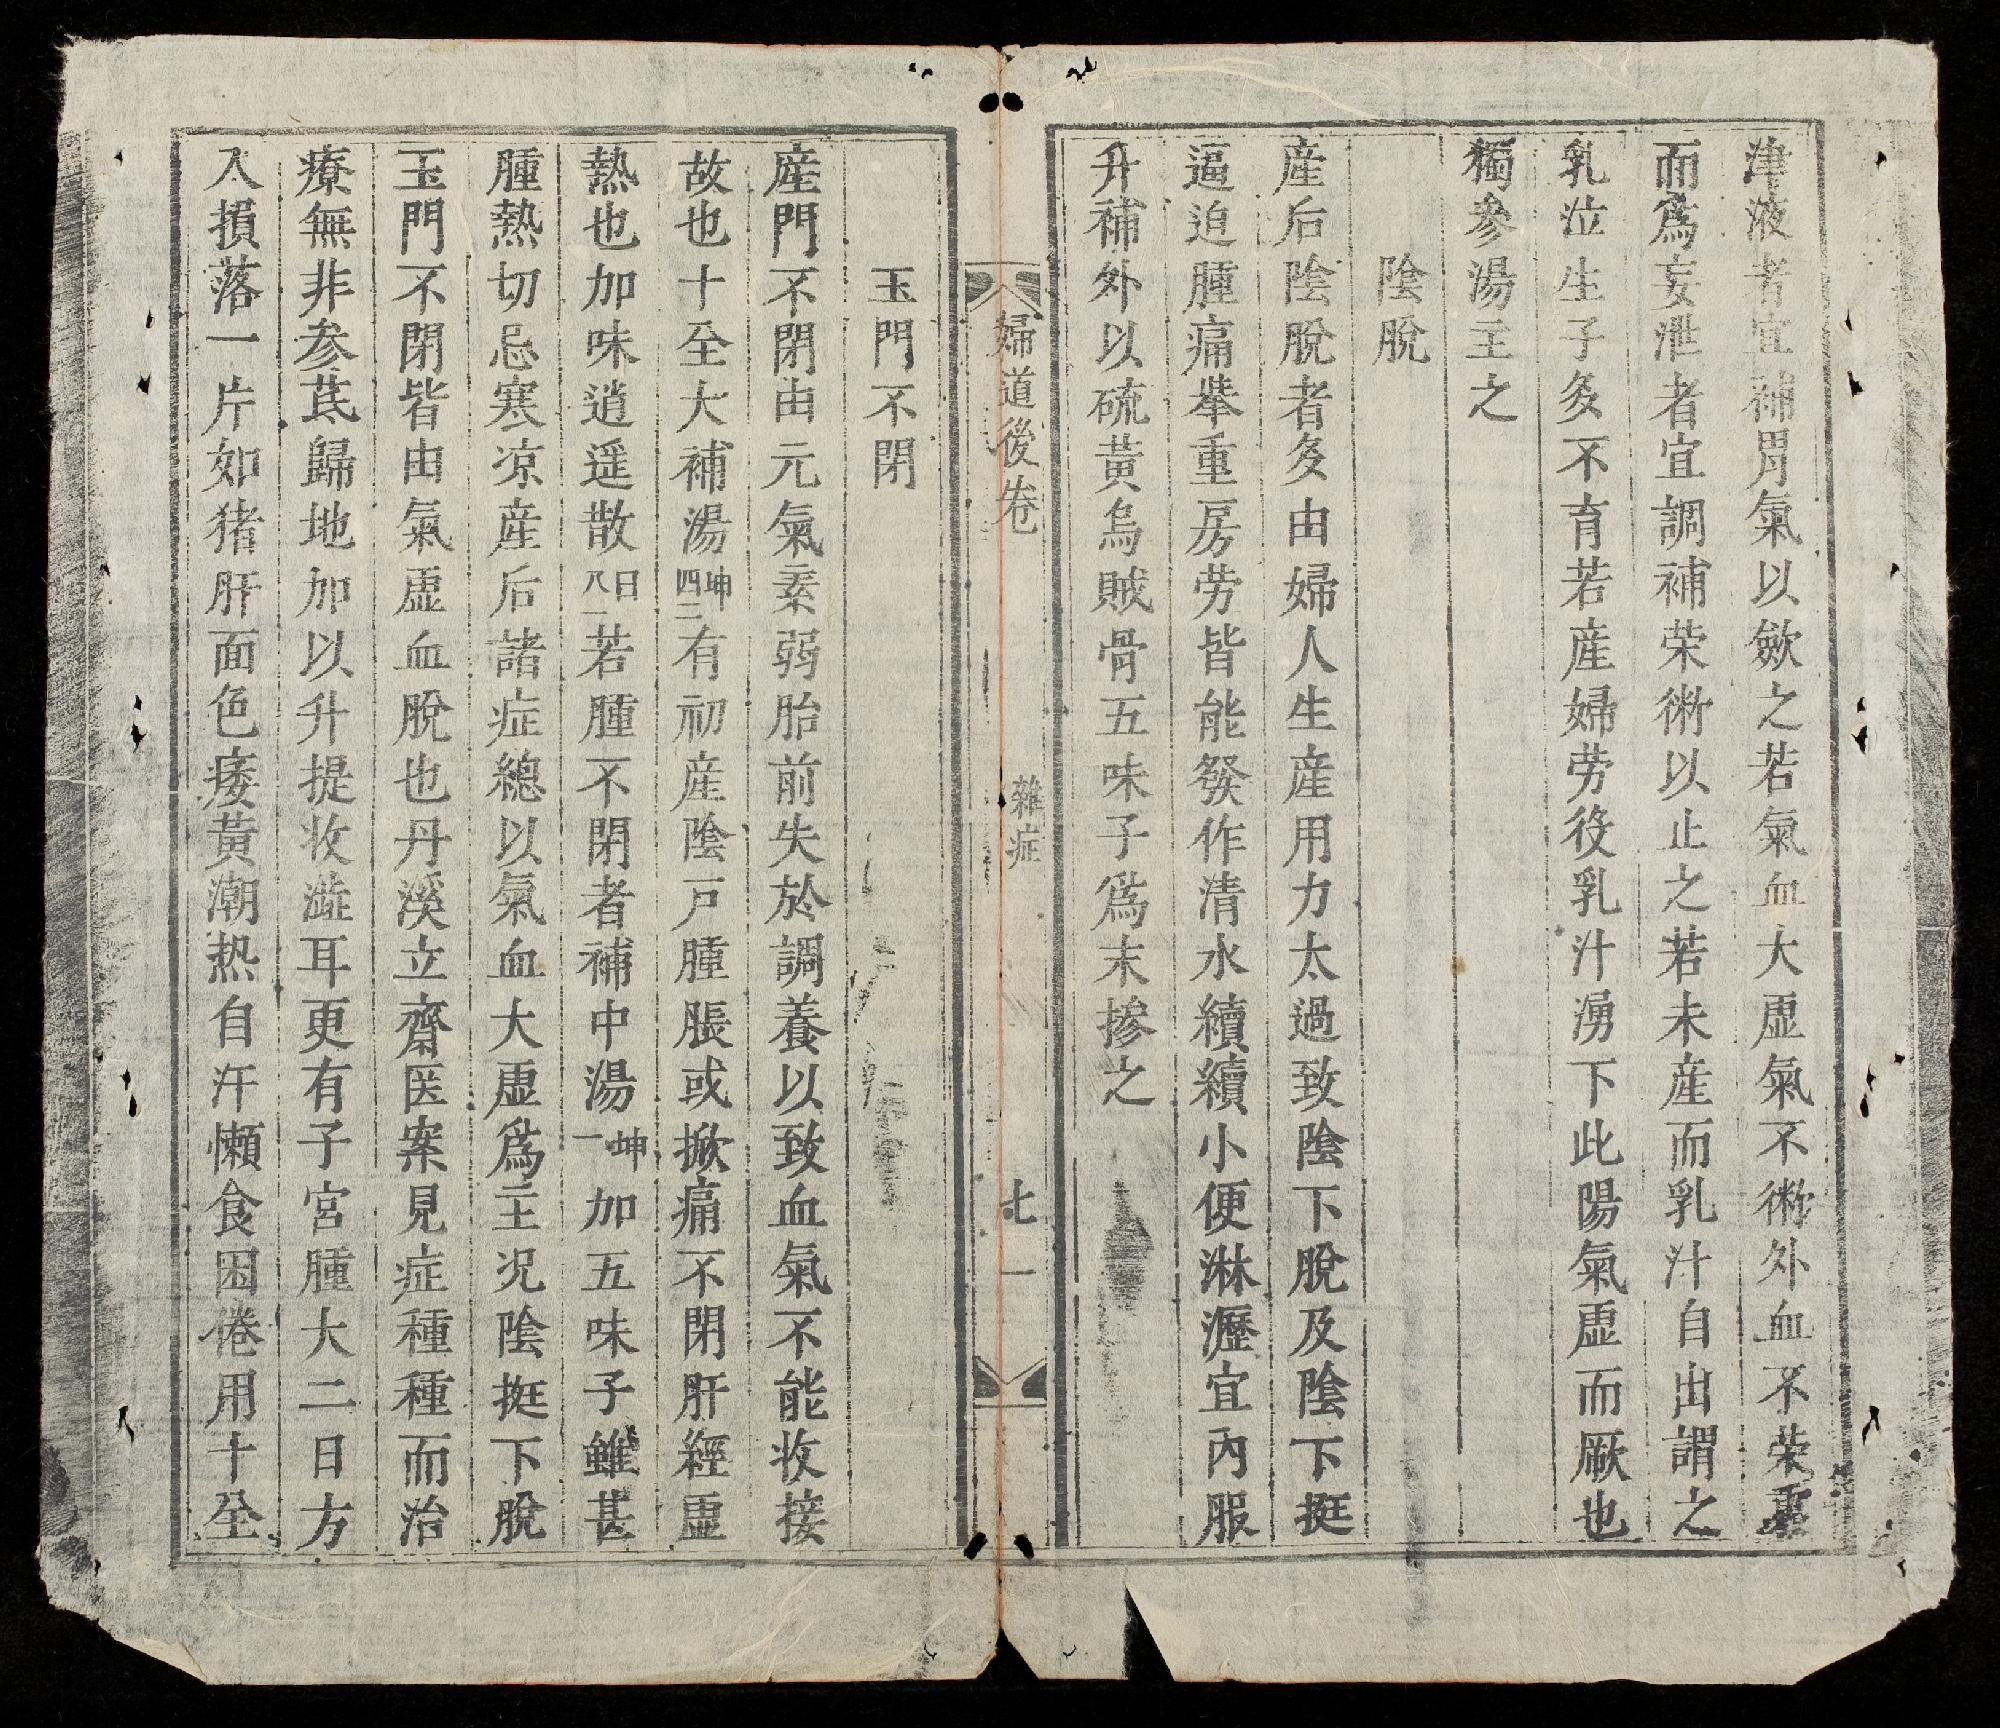 津液者宜補胃氣以歛之若氣血大虛氣不衛外血不荣裏
而爲妄泄者宜調補荣衛以止之若未産而乳汁自出謂之
乳泣生子多不育若産婦劳役乳汁湧下此陽氣虛而厥也
獨參湯主之
陰脫
産后陰脫者多由婦人生産用力太過致陰下脫及陰下挺
逼迫腫痛擧重房劳皆能發作清水續續小便淋瀝宜內服
升補外以硫黃烏賊骨五味子爲末摻之
婦道後卷 雜症 七一
玉門不閉
産門不閉由元氣素弱胎前失於調養以致血氣不能收接
故也十全大補湯坤四三有初産陰戸腫脹或掀痛不閉肝經虛
熱也加味逍遥散日八一若腫不閉者補中湯坤一加五味子雖甚
腫熱切忌寒凉産后諸症總以氣血大虛爲主况陰挺下脫
玉門不閉皆由氣虛血脫也丹溪立齋医案見症種種而治
療無非参茋歸地加以升提收澁耳更有子宮腫大二日方
入損落一片如猪肝面色痿黃潮热自汗懶食困倦用十全